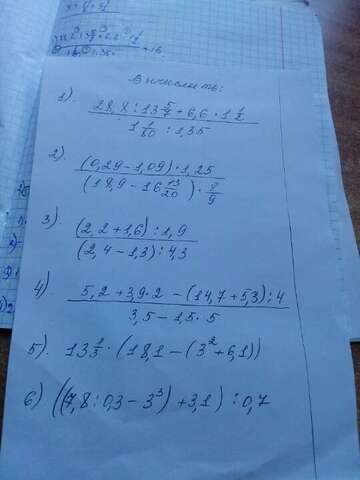 Вычислить:
1). (28,8 : 13 5/7 + 6,6 · 1 1/2) / (1 1/20 : 1,35)
2). ((0,29 - 1,09) · 1,25) / ((18,9 - 16 13/20) · 8/9)
3). ((2,2 + 1,6) : 1,9) / ((2,4 - 1,3) : 4,3)
4) (5,2 + 3,9 · 2 - (14,7 + 5,3) : 4) / (3,5 - 1,5 · 5)
5). 13 1/3 · (18,1 - (3² + 6,1))
6) ((7,8 : 0,3 - 3³) + 3,1) : 0,7